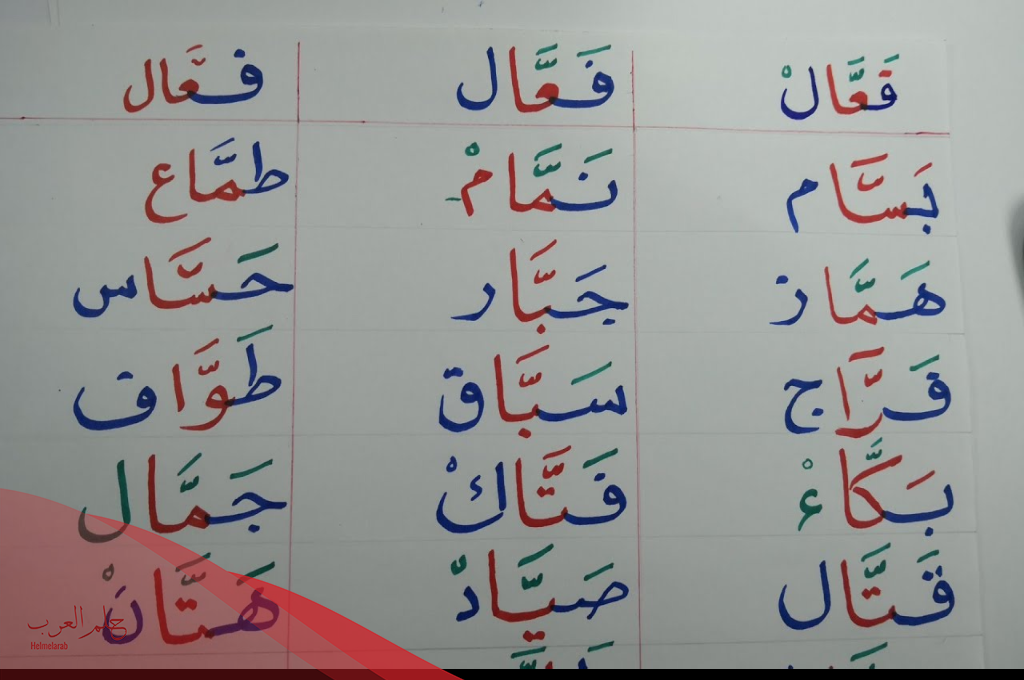 فَعَّالْ فَعَّال فعّال
بَسَّام نَمَّامْ طمَّاع
هَمَّاز جَبَّار حَسَّاس
فَرَّاج سَبَّاق طَوَّاف
بَكَّاءْ فَتَّاكْ جَمَّال
قَتَّال صَيَّادّ هَتَّانْ
حلم العرب
Helmelarab